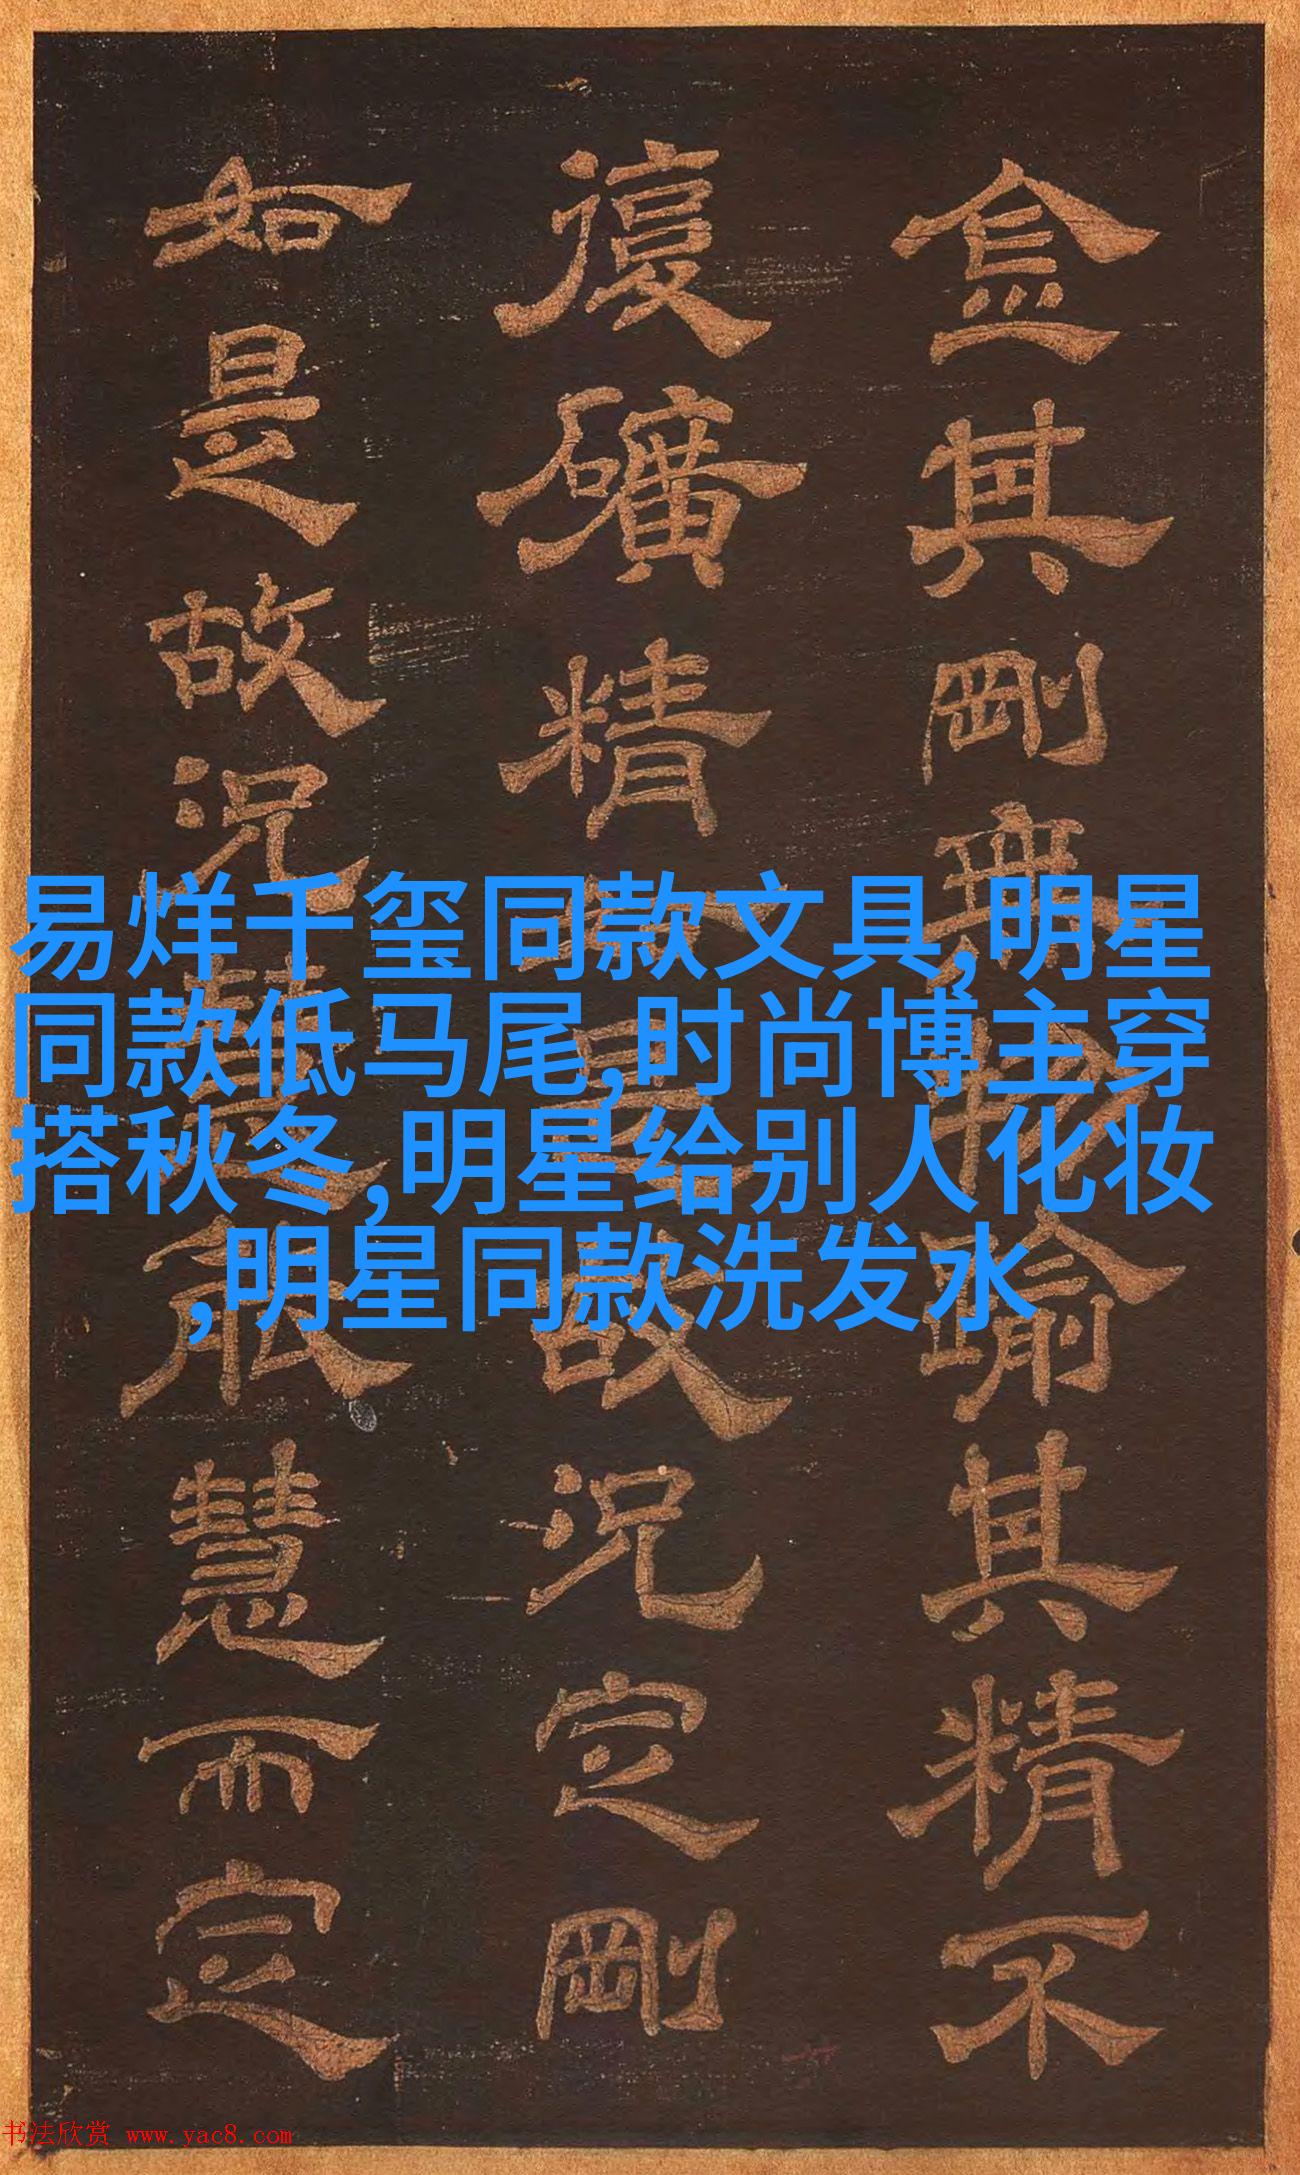 金其剛無物踰其精不
復礦精是故況定剛
如是故況慧能慧而定
易烊千玺同款文具,明星
同款低马尾,时尚博主穿
搭秋冬,明星给别人化妆
,明星同款洗发水
书法欣赏 www.yac8.com